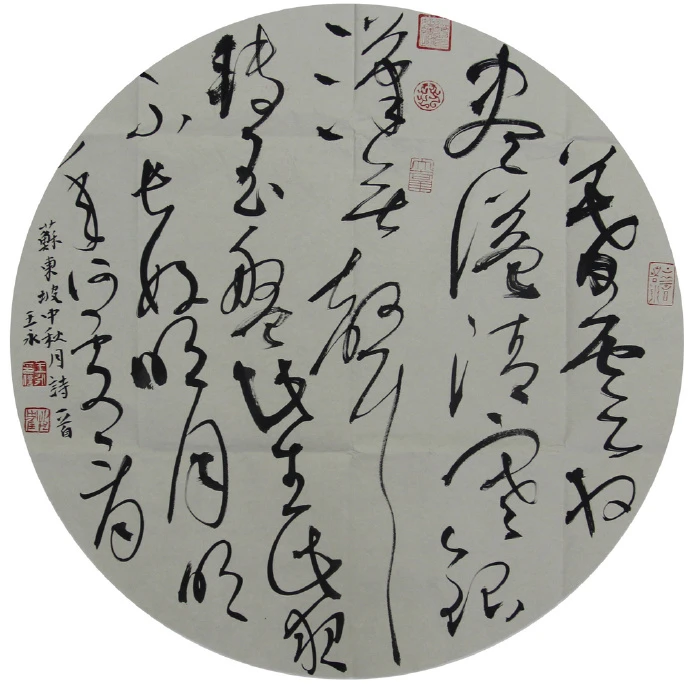 暮雲收
盡溢清寒銀
漢無聲
轉玉盤此生此夜
不長好明月明
年何處看
蘇東坡中秋月詩一首
王永